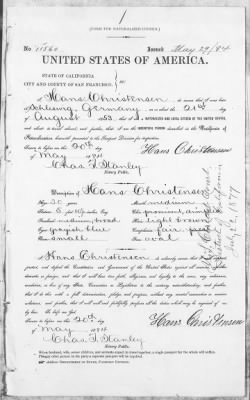 1
[FORM FOR NATURALIZED CITIZEN.]
No 11560 Issued May 29/84
UNITED STATES OF AMERICA.
STATE OF CALIFORNIA
CITY AND COUNTY OF SAN FRANCISCO, } ss:
I, Hans Christensen, do swear that I was born
in Schleswig Germany, on or about the 21st day
of August 1853, that I am a NATURALIZED AND LOYAL CITIZEN OF THE UNITED STATES,
and about to travel abroad; and further, that I am the IDENTICAL PERSON described in the Certificate of
Naturalization, herewith presented to the Passport Division for inspection.
Sworn to before me this 20th day
of May 1884
Hans Christensen
Chas T. Stanley
Notary Public.
Description of Hans Christensen
Age: 30 years
Mouth: medium
Stature: 5 feet
Chin:
Forehead:
Hair: light brown
Eyes: grayish blue
Complexion: fair
Nose: small
Face: oval
I, Hans Christensen, do solemnly swear that I will support, protect
and defend the Constitution and Government of the United States against all enemies, whether
domestic or foreign, and that I will bear true faith, allegiance and loyalty to the same, any ordinance,
resolution, or law of any State, Convention or Legislature to the contrary notwithstanding; and further,
that I do this with a full determination, pledge and purpose, without any mental reservation or evasion
whatsoever; and further, that I will well and faithfully perform all the duties which may be required of me
by law. So help me God.
Sworn to before me this 20th day
of May 1884
Hans Christensen
Chas T. Stanley
Notary Public.
When husband, wife, minor children, and servants expect to travel together, a single passport for the whole will suffice.
For any other person in the party a separate passport will be required.